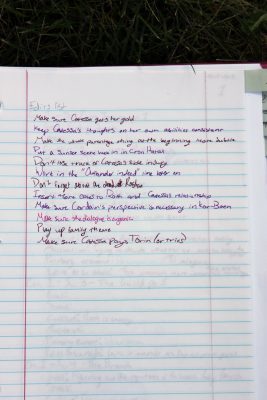 Edits list
Make sure Caressa gets her gold
Keep Caressa's thoughts on her own abilities consistent
Make the whole parentage thing at the beginning more subtle
Put a Junter scene back in in Cran Haras
Don't lose track of Caressa's knife indugy
Work in the "Outlander indeed" line later on
Don't forget about the dead
Insert more cases to Roah and Caressa's relationship
Make sure Cordain's perspective is necessary in Kar-Boen
Make sure the dialogue is organic
Play up family theme
Make sure Caressa pays Torin (or tries)